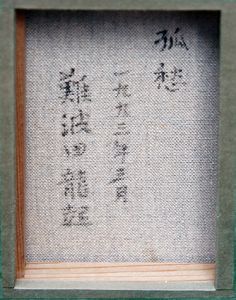 孤愁
一九九三年五月
難波田龍起